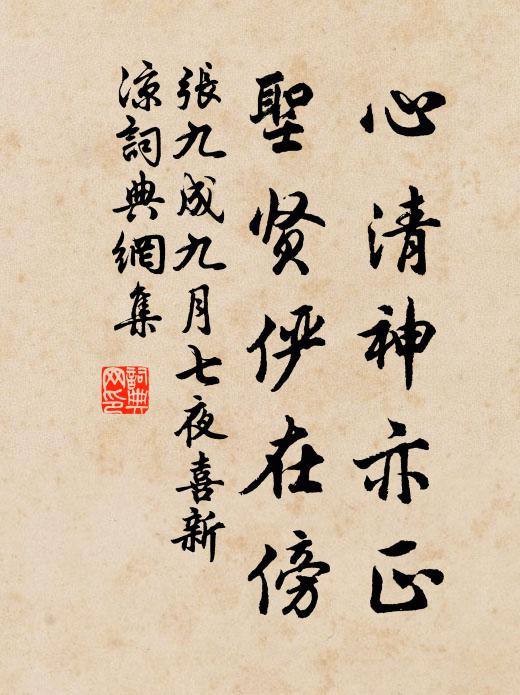 心清神亦正
聖賢俨在傍
張九成九月七夜喜新
凉詞典網集
詞典网印